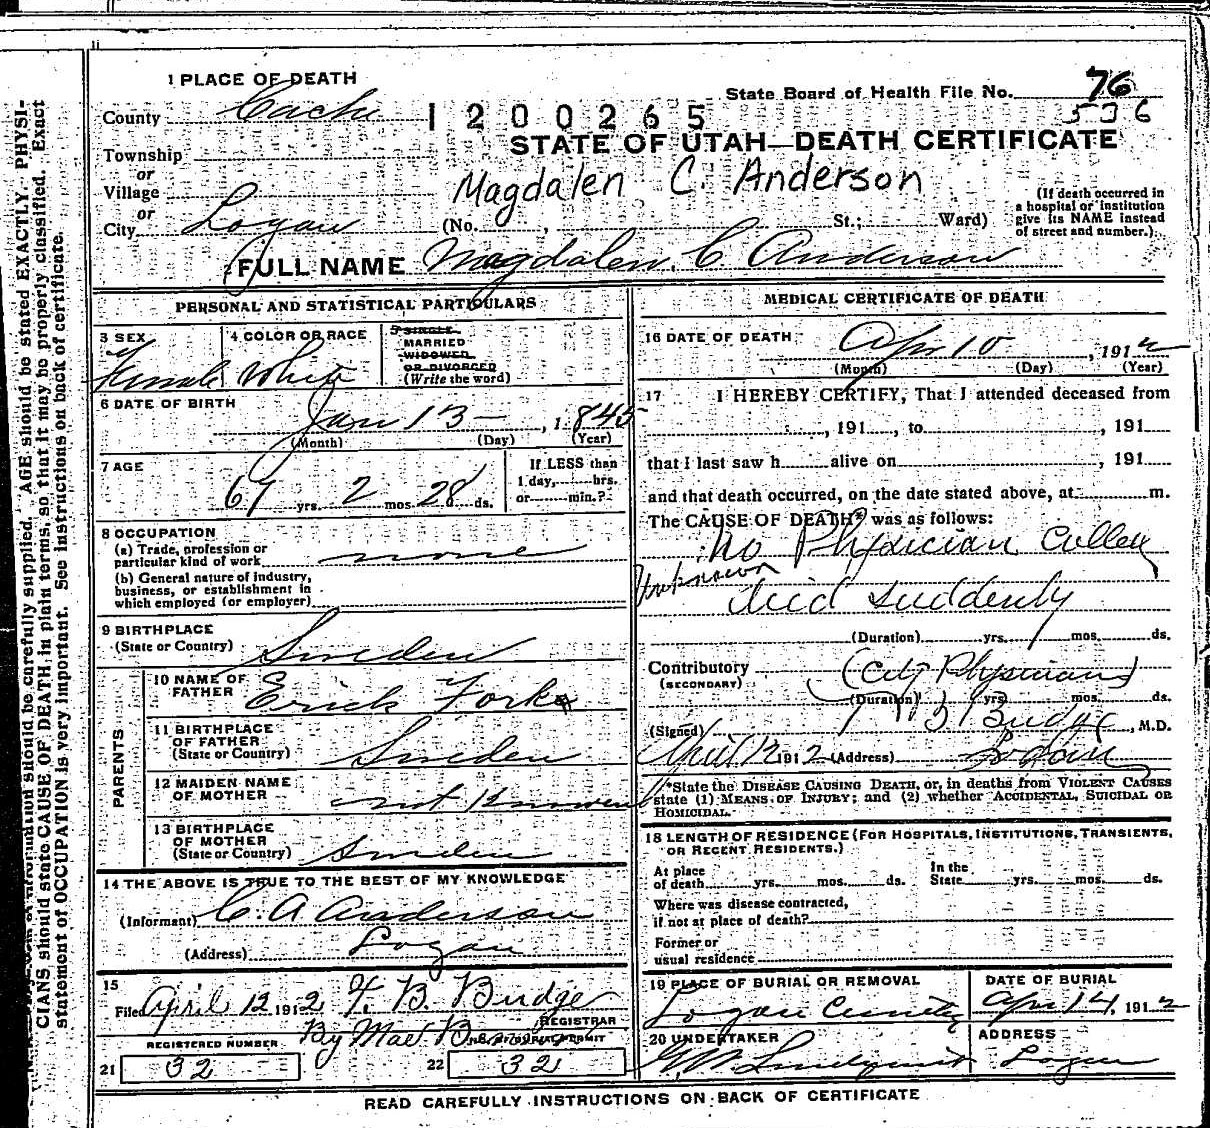 1 PLACE OF DEATH
State Board of Health File No. 76
County Cache
1200265
536
STATE OF UTAH—DEATH CERTIFICATE
Township
or
Village
Magdalen C. Anderson
or
City Logan (No. , St.; Ward)
(If death occurred in
a hospital or institution
give its NAME instead
of street and number.)
FULL NAME Magdalen C Anderson
PERSONAL AND STATISTICAL PARTICULARS
3 SEX
Female
4 COLOR OR RACE
White
5 SINGLE
MARRIED
WIDOWED
OR DIVORCED
(Write the word)
6 DATE OF BIRTH
Jan 13 – , 1845
(Month) (Day) (Year)
7 AGE
67 yrs. 2 mos. 28 ds.
If LESS than
1 day, hrs.
or min.?
8 OCCUPATION
(a) Trade, profession or
particular kind of work none
(b) General nature of industry,
business, or establishment in
which employed (or employer)
9 BIRTHPLACE
(State or Country) Sweden
PARENTS
10 NAME OF
FATHER Erick Forks
11 BIRTHPLACE
OF FATHER
(State or Country) Sweden
12 MAIDEN NAME
OF MOTHER not Known
13 BIRTHPLACE
OF MOTHER
(State or Country) Sweden
14 THE ABOVE IS TRUE TO THE BEST OF MY KNOWLEDGE
(Informant) C. A Anderson
(Address) Logan
15
Filed April 12 1912 F. B. Budge
REGISTRAR
By Mae
REGISTERED NUMBER
21 32
22 32
MEDICAL CERTIFICATE OF DEATH
16 DATE OF DEATH
Apr 10 , 1912
(Month) (Day) (Year)
17 I HEREBY CERTIFY, That I attended deceased from
, 191 , to , 191
that I last saw h alive on , 191
and that death occurred, on the date stated above, at m.
The CAUSE OF DEATH* was as follows:
No Physician Called
Unknown
died suddenly
(Duration) yrs. mos. ds.
Contributory (City Physician)
(SECONDARY)
(Duration) yrs. mos. ds.
(Signed) Budge, M.D.
April 12 1912 (Address) Logan
*State the DISEASE CAUSING DEATH, or, in deaths from VIOLENT CAUSES
state (1) MEANS OF INJURY; and (2) whether ACCIDENTAL, SUICIDAL OR
HOMICIDAL.
18 LENGTH OF RESIDENCE (FOR HOSPITALS, INSTITUTIONS, TRANSIENTS,
OR RECENT RESIDENTS.)
At place
of death yrs. mos. ds.
In the
State yrs. mos. ds.
Where was disease contracted,
if not at place of death?
Former or
usual residence
19 PLACE OF BURIAL OR REMOVAL
Logan Cemetery
DATE OF BURIAL
Apr 14, 1912
20 UNDERTAKER
Lindquist
ADDRESS
Logan
READ CAREFULLY INSTRUCTIONS ON BACK OF CERTIFICATE
should be carefully supplied. AGE should be stated EXACTLY. PHYSI-
CIANS should state CAUSE OF DEATH in plain terms, so that it may be properly classified. Exact
statement of OCCUPATION is very important. See instructions on back of certificate.